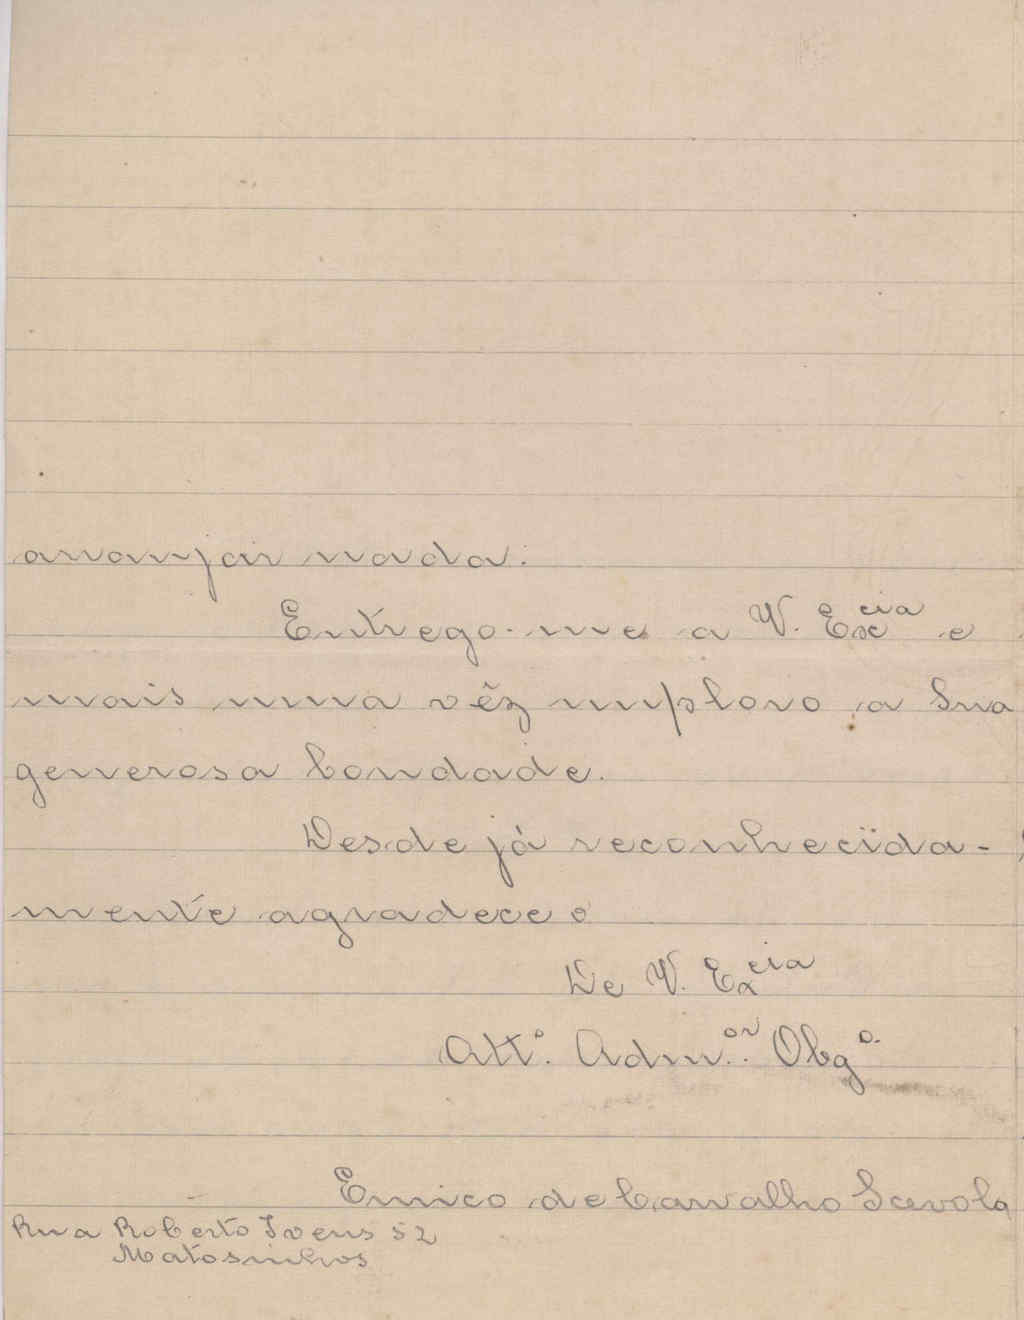 arranjar nada.
Entrego-me a V. Excia e
mais uma vêz imploro a Sua
generosa bondade.
Desde já reconhecida-
mente agradece o
De V. Excia
Att.º Adm.or Obg.º
de Carvalho Scevola
Rua Roberto Ivens 52
Matosinhos